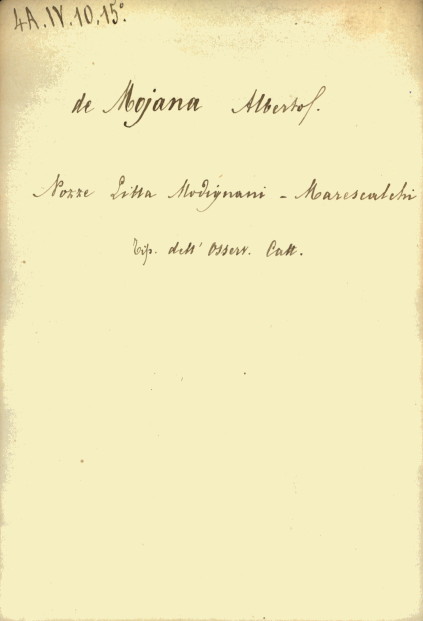 4A.IV.10,15°.
de Mojana Alberto.
Nozze Litta Modignani - Marescalchi
Tip. dell' Osserv. Catt.